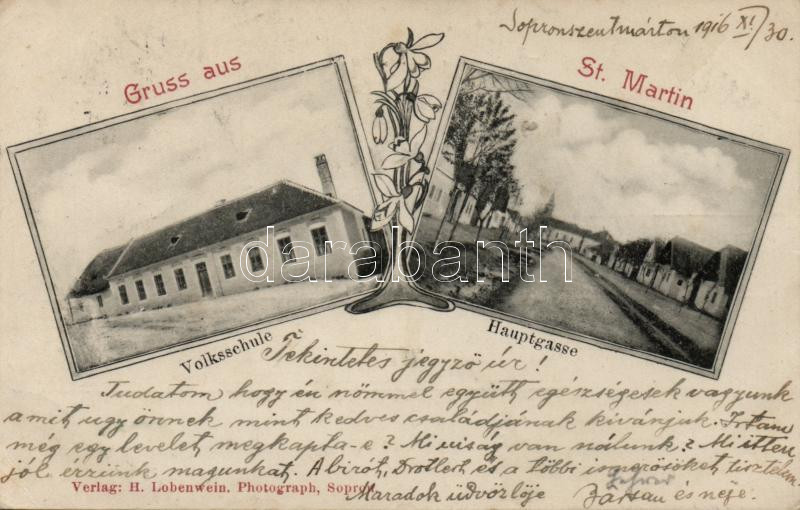 Sopronszentmárton 1916 XI/30.
Gruss aus
St. Martin
darabanth
Volksschule
Hauptgasse
Tekintetes jegyző úr!
Tudatom hogy én nőmmel együtt egészségesek vagyunk
amit ugy önnek mint kedves családjának kivánjuk. Irtam
még egy levelet megkapta-e? Mi ujság van nálunk? Mi itten
jól érzünk magunkat. A birót, Drotlert és a többi ismerősöket tisztelem
Verlag: H. Lobenwein, Photograph, Sopron.
Maradok üdvözlője
és neje.